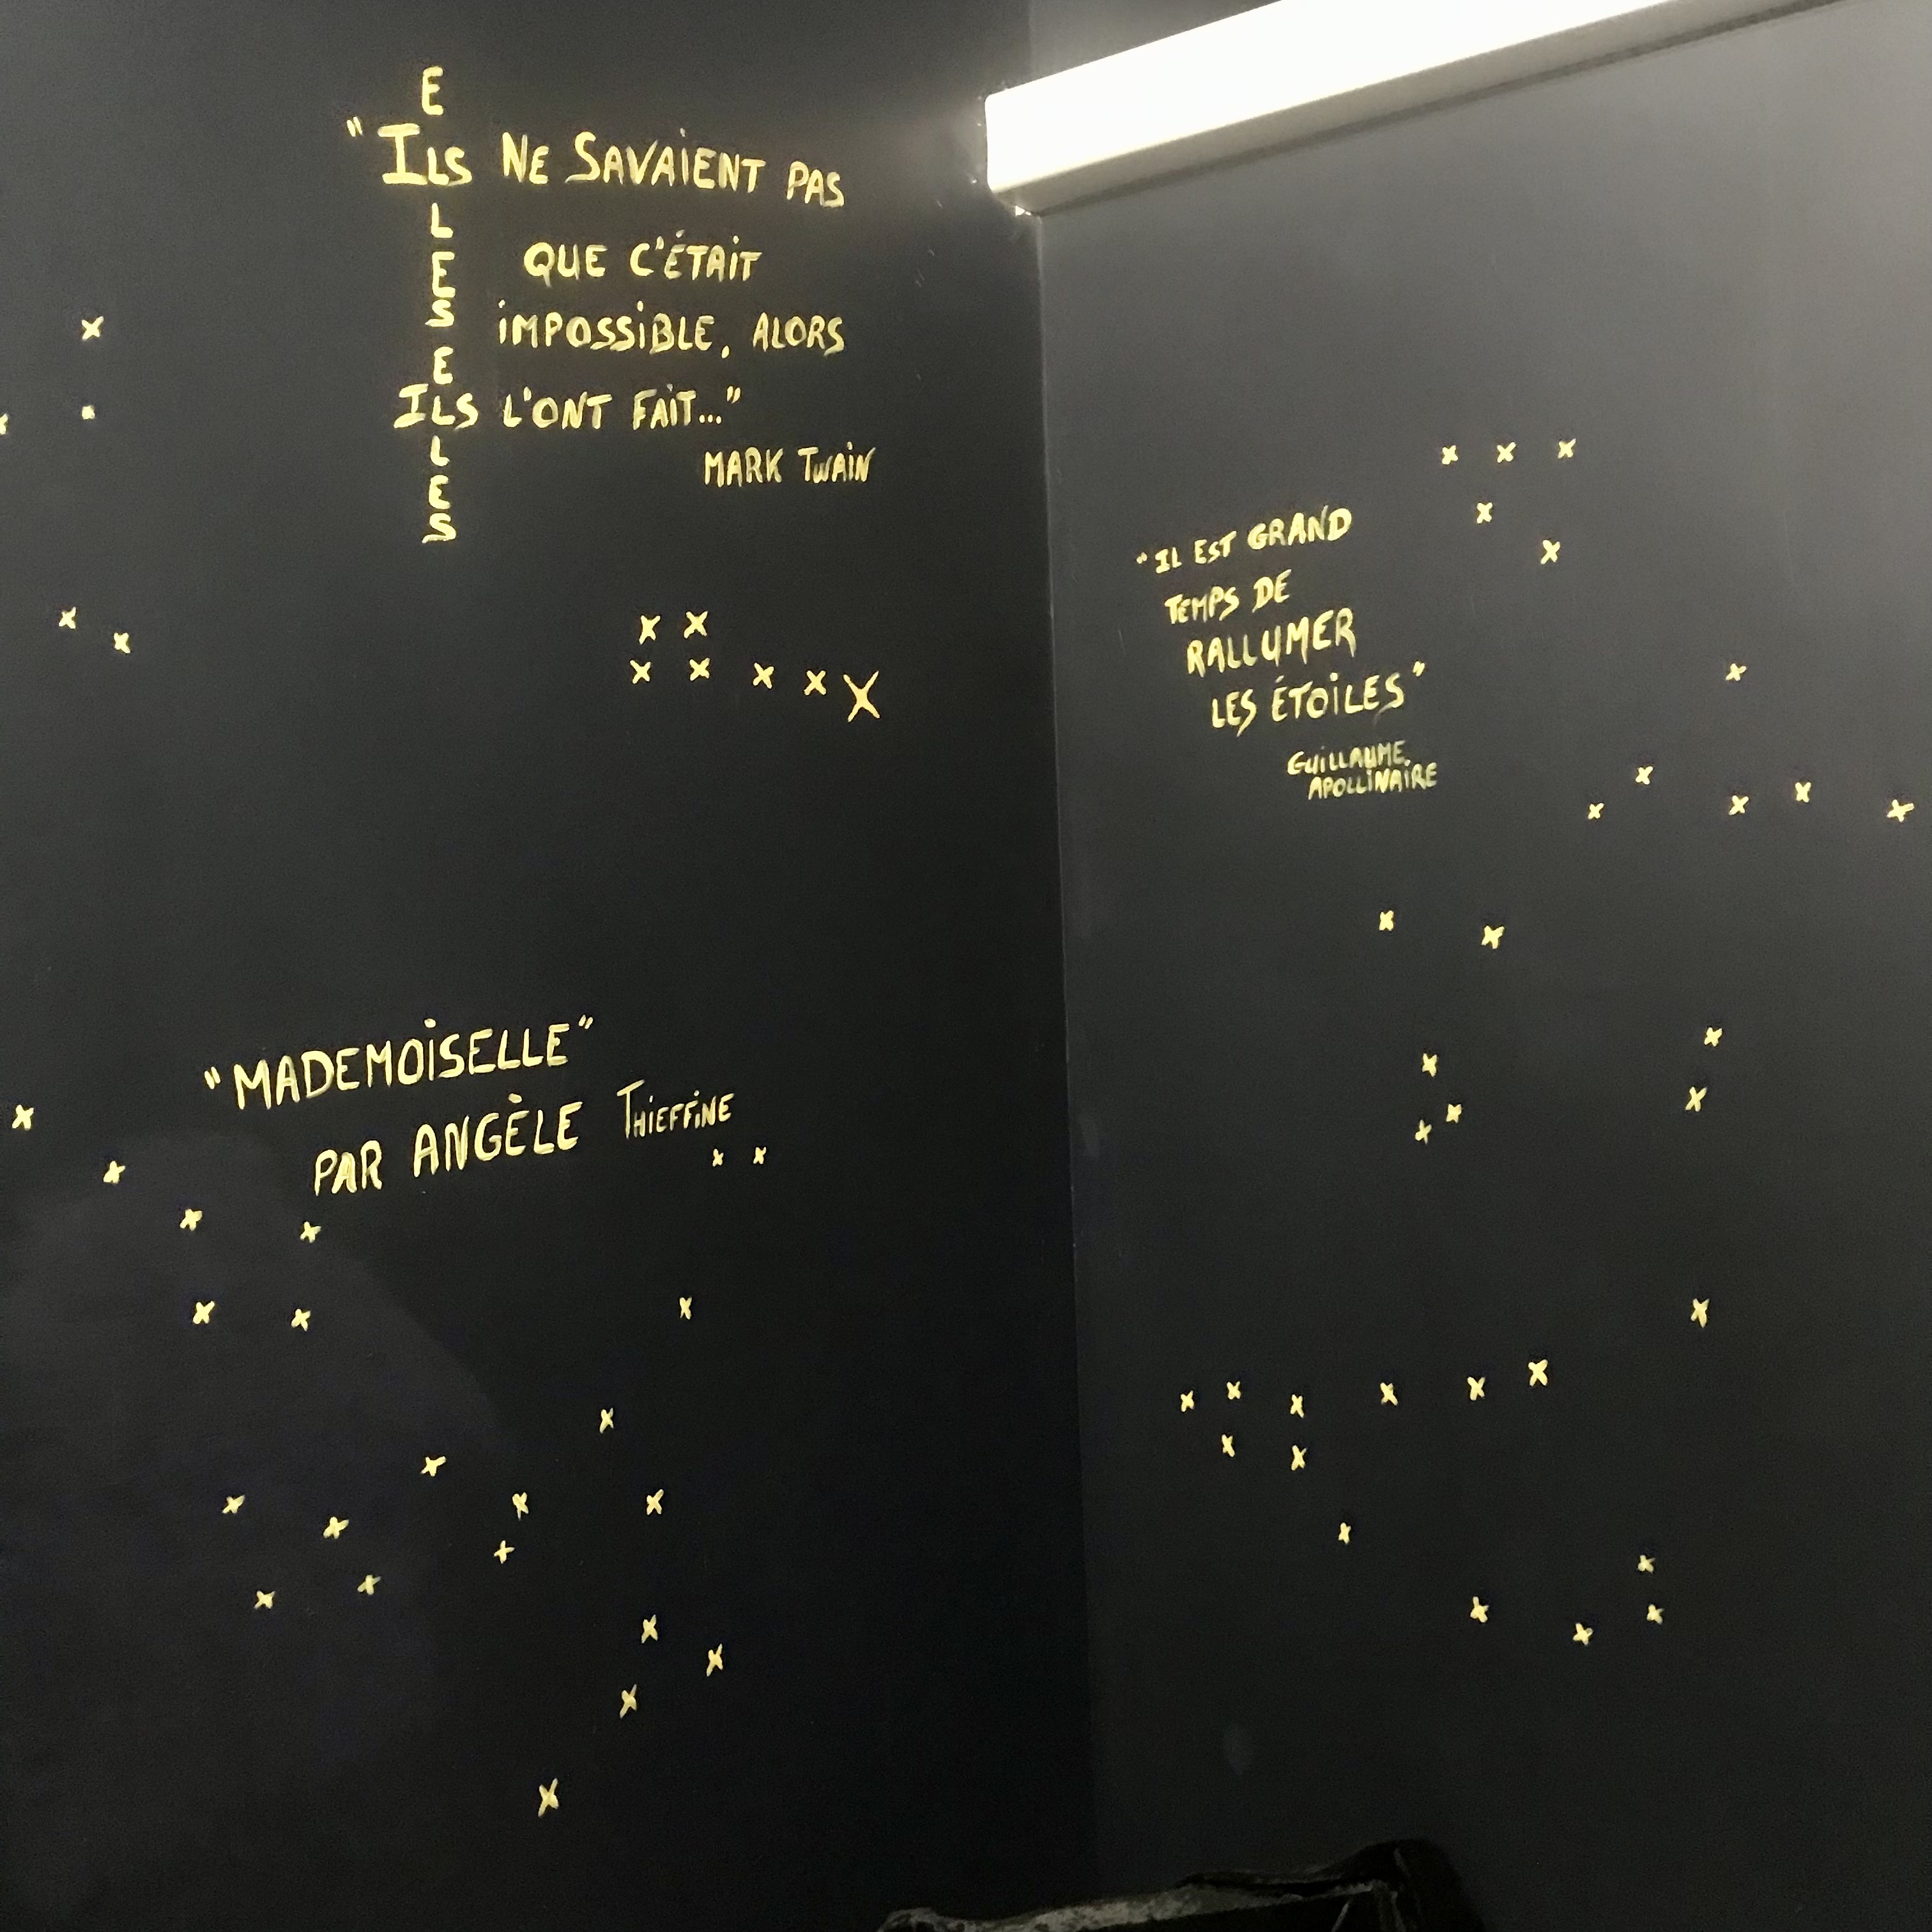 E
"ILS NE SAVAIENT PAS
L
E
S
QUE C'ÉTAIT
IMPOSSIBLE, ALORS
E
ILS L'ONT FAIT..."
L
E
S
MARK TWAIN
"MADEMOISELLE"
PAR ANGÈLE THIEFFINE
"IL EST GRAND
TEMPS DE
RALLUMER
LES ÉTOILES"
GUILLAUME
APOLLINAIRE